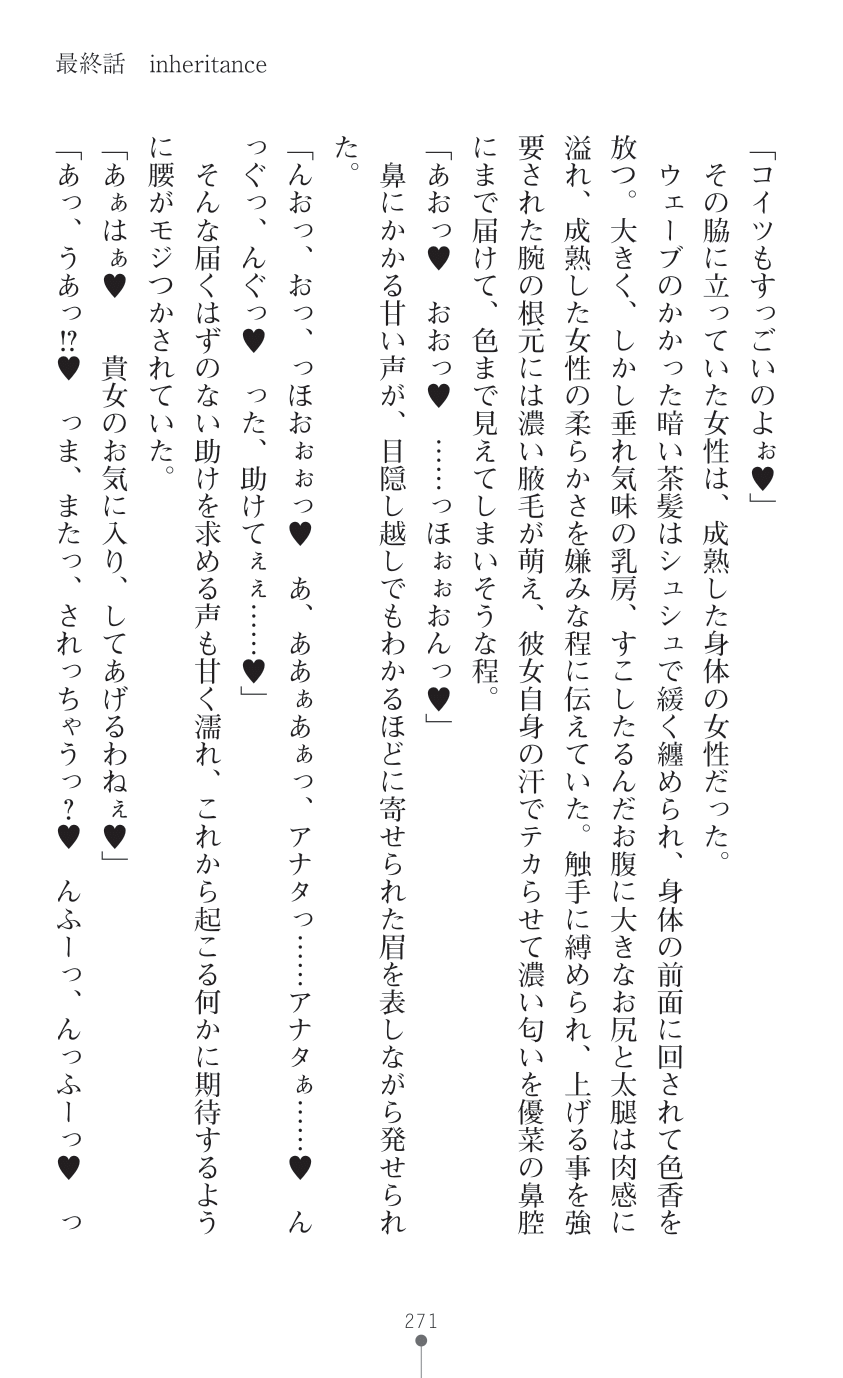 最終話　inheritance
「コイツもすっごいのよぉ♥」
　その脇に立っていた女性は、成熟した身体の女性だった。
　ウェーブのかかった暗い茶髪はシュシュで緩く纏められ、身体の前面に回されて色香を
放つ。大きく、しかし垂れ気味の乳房、すこしたるんだお腹に大きなお尻と太腿は肉感に
溢れ、成熟した女性の柔らかさを嫌みな程に伝えていた。触手に縛められ、上げる事を強
要された腕の根元には濃い腋毛が萌え、彼女自身の汗でテカらせて濃い匂いを優菜の鼻腔
にまで届けて、色まで見えてしまいそうな程。
「あおっ♥　おおっ♥　……っほぉぉおんっ♥」
　鼻にかかる甘い声が、目隠し越しでもわかるほどに寄せられた眉を表しながら発せられ
た。
「んおっ、おっ、っほおぉぉっ♥　あ、ああぁあぁっ、アナタっ……アナタぁ……♥　ん
っぐっ、んぐっ♥　った、助けてぇぇ……♥」
　そんな届くはずのない助けを求める声も甘く濡れ、これから起こる何かに期待するよう
に腰がモジつかされていた。
「あぁはぁ♥　貴女のお気に入り、してあげるわねぇ♥」
「あっ、うあっ!?♥　っま、またっ、されっちゃうっ？♥　んふーっ、んっふーっ♥　っ
271